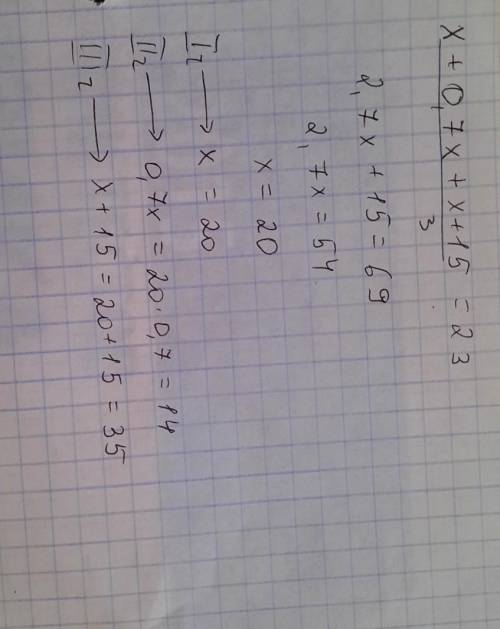 x + 0,7x + x + 15 = 23
3
2,7x + 15 = 69
2,7x = 54
x = 20
I ч → x = 20
II ч → 0,7x = 20·0,7 = 14
III ч → x + 15 = 20 + 15 = 35